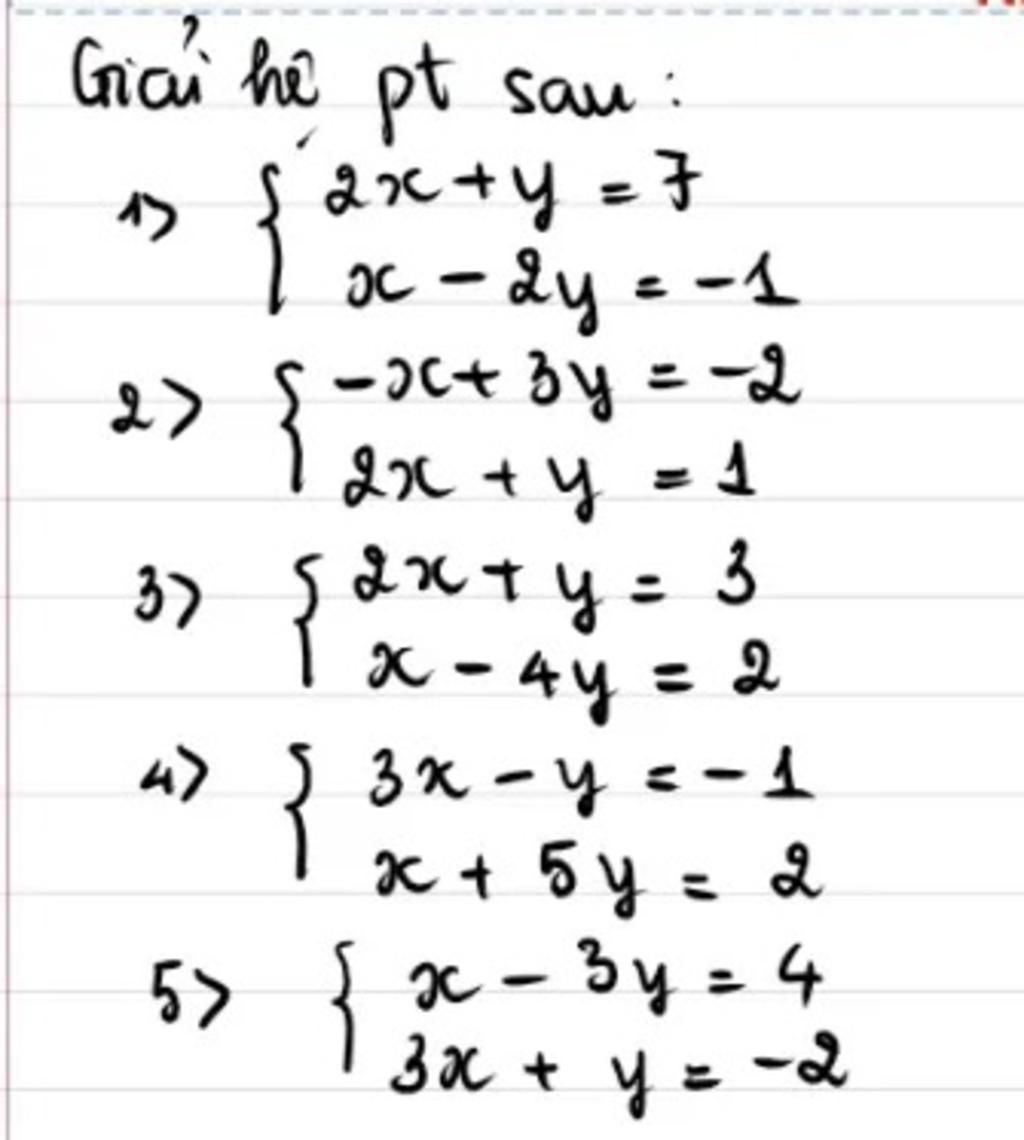 Giải hệ pt sau:
1> { 2x + y = 7
x - 2y = -1
2> { -x + 3y = -2
2x + y = 1
3> { 2x + y = 3
x - 4y = 2
4> { 3x - y = -1
x + 5y = 2
5> { x - 3y = 4
3x + y = -2